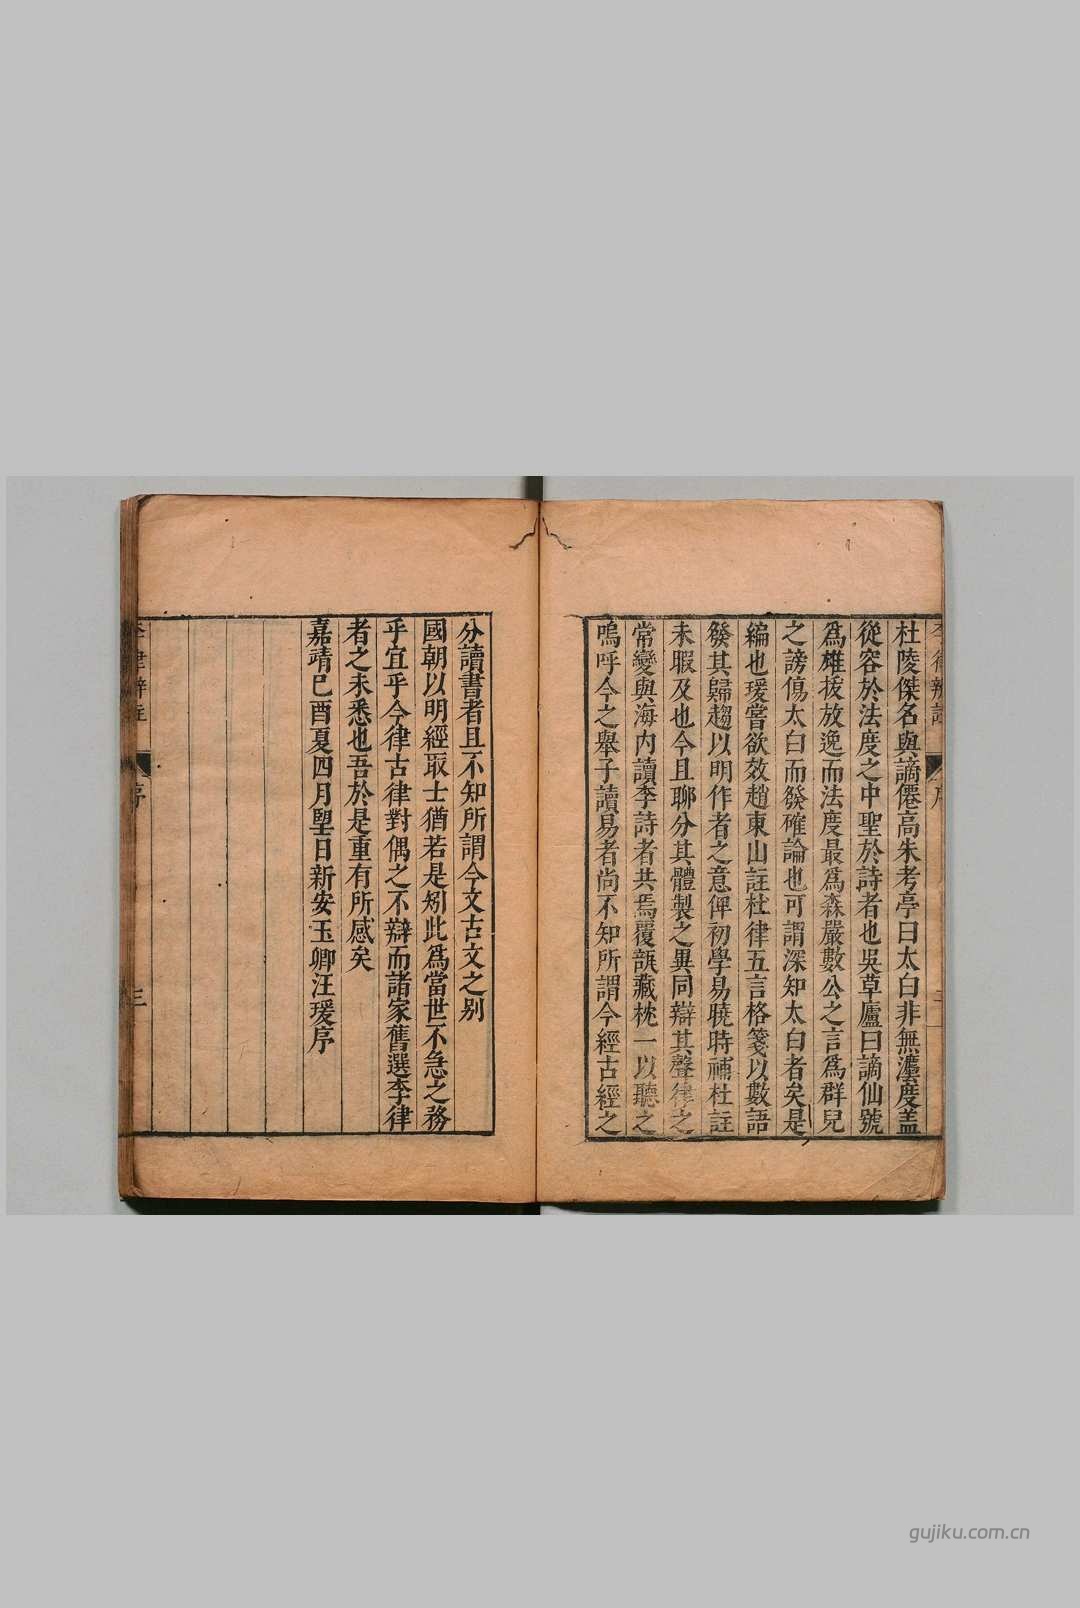 杜陵傑名與謫僊高朱考亭曰太白非無灋度盖
從容於法度之中聖於詩者也吳草廬曰謫仙號
爲雄拔放逸而法度最爲森嚴數公之言爲群兒
之謗傷太白而發確論也可謂深知太白者矣是
編也瑗嘗欲效趙東山註杜律五言格箋以數語
發其歸趨以明作者之意俾初學易曉時補杜註
未暇及也今且聊分其體製之異同辯其聲律之
常變與海内讀李詩者共焉覆瓿藏枕一以聽之
嗚呼今之舉子讀易者尚不知所謂今經古經之
三
分讀書者且不知所謂今文古文之别
國朝以明經取士猶若是矧此爲當世不急之務
乎宜乎今律古律對偶之不辯而諸家舊選李律
者之未悉也吾於是重有所感矣
嘉靖已酉夏四月朢日新安玉卿汪瑗序
李律辯註
序
三
gujiku.com.cn